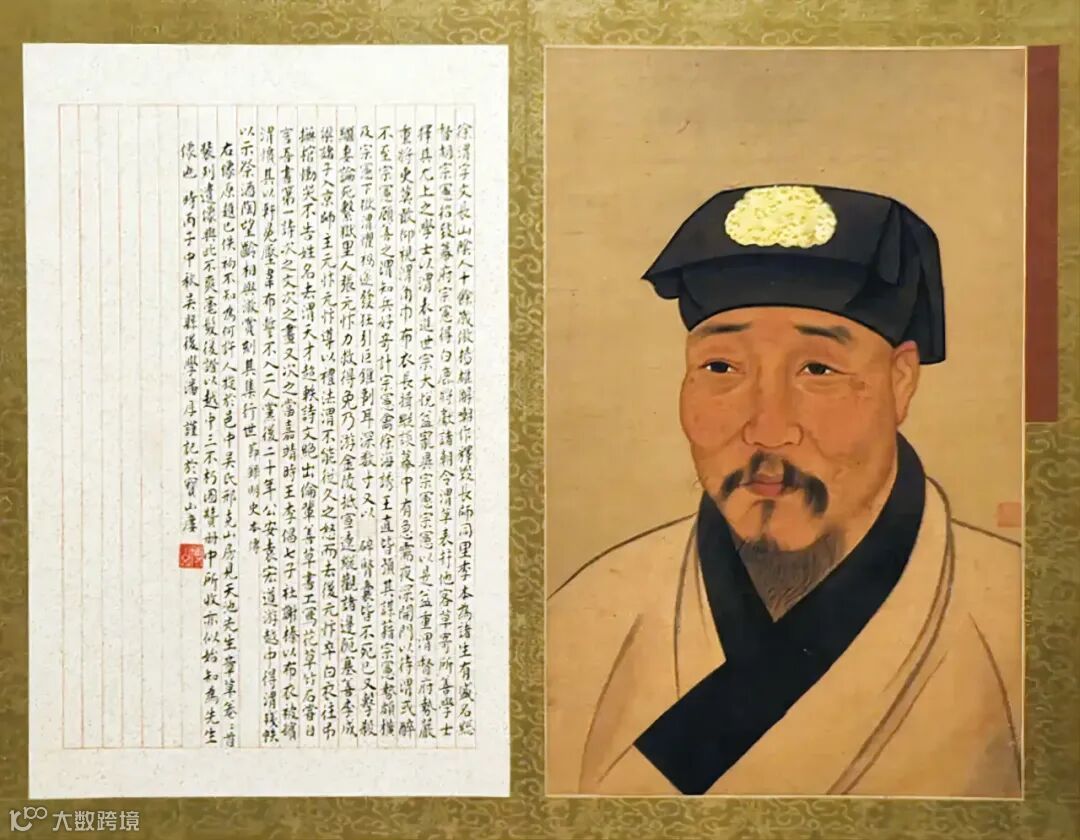 徐渭字文長山陰人十餘歲倣揚雄解嘲作釋毀長師同里季本為諸生有盛名總
督胡宗憲招致幕府宗憲得白鹿將獻諸朝令渭草表并他客草寄所善學士
擇其尤上之學士以渭表進世宗大悅益寵異宗憲宗憲以是益重渭督府勢嚴
重將吏莫敢仰視渭角巾布衣長揖縱談幕中有急需夜深開門以待渭或醉
不至宗憲顧善之渭知兵好奇計宗憲禽徐海誘王直皆預其謀藉宗憲勢頗橫
及宗憲下獄渭懼禍遂發狂引巨錐剚耳深數寸又以 碎腎囊皆不死已又擊殺
繼妻論死繫獄里人張元忭力救得免乃游金陵抵宣遼縱觀諸邊阨塞善李成
梁諸子入京師主元忭元忭導以禮法渭不能從久之怒而去後元忭卒白衣往弔
撫棺慟哭不告姓名去渭天才超軼詩文絕出倫輩善草書工寫花草竹石嘗自
言吾書第一詩次之文次之畫又次之當嘉靖時王李倡七子社謝榛以布衣被擯
渭憤其以軒冕壓韋布誓不入二人黨後二十年公安袁宏道游越中得渭殘帙
以示祭酒陶望齡相與激賞刻其集行世 節錄明史本傳
右像原題已佚初不知為何許人於邑中吳氏邢克山房見天池先生章草卷卷首
裝列遺像與此不爽毫髮後證以越中三不朽圖贊冊中所收亦似始知為先生
像也 時丙子中秋吳縣後學潘厚謹記於寶山廔
大数跨境